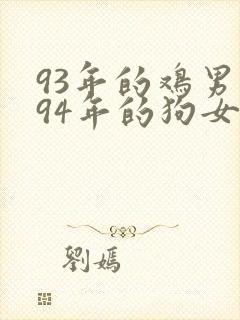 93年的鸡男
94年的狗女
劉嫣